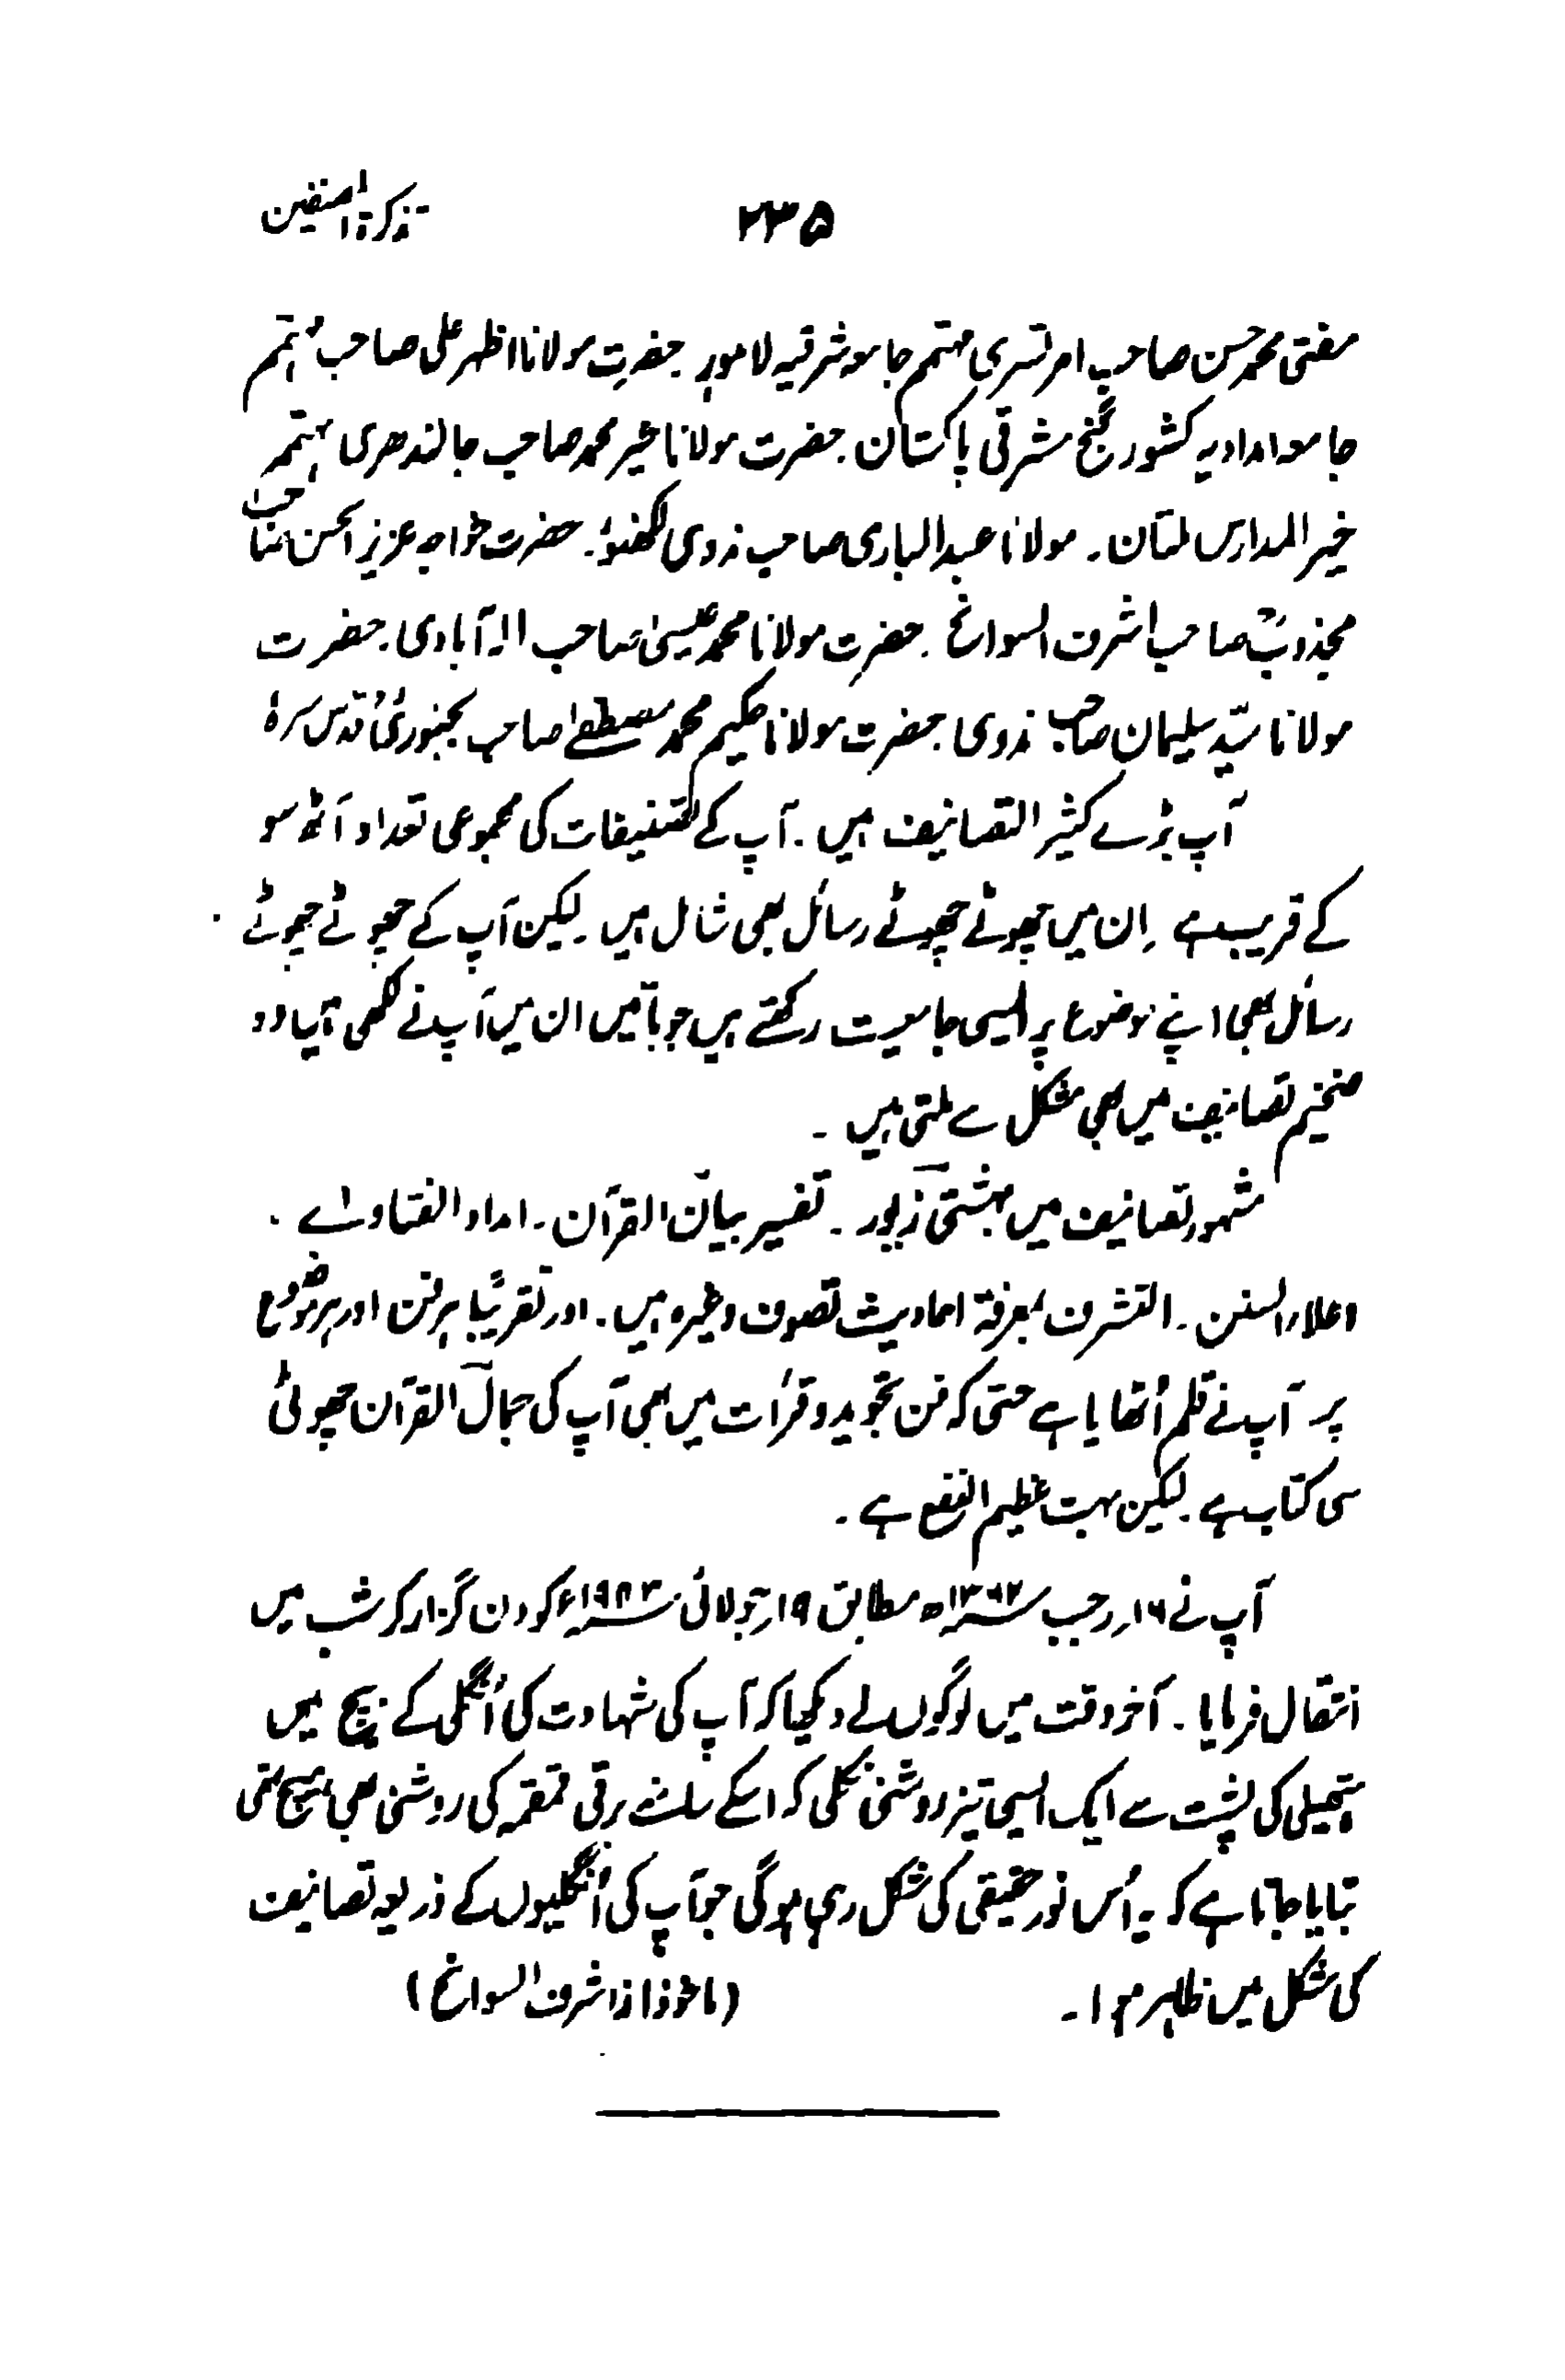 تذکرۃ المصنفین
۲۳۵
مفتی محمد حسن صاحب امرتسری مہتمم جامعہ اشرفیہ لاہور۔ حضرت مولانا اظہر علی صاحب مہتمم
جامعہ امدادیہ کشور گنج مشرقی پاکستان۔ حضرت مولانا خیر محمد صاحب جالندھری مہتمم
خیر المدارس ملتان۔ مولانا عبدالباری صاحب ندوی لکھنؤ۔ حضرت خواجہ عزیز الحسن صاحب
مجذوب صاحب اشرف السوانح۔ حضرت مولانا محمد عیسیٰ صاحب الہ آبادی۔ حضرت
مولانا سیّد سلیمان صاحب ندوی۔ حضرت مولانا حکیم محمد مصطفےٰ صاحب بجنوریؒ قدس سرہٗ
آپ بڑے کثیر التصانیف ہیں۔ آپ کے تصنیفات کی مجموعی تعداد آٹھ سو
کے قریب ہے۔ اِن میں چھوٹے چھوٹے رسائل بھی شامل ہیں۔ لیکن آپ کے چھوٹے چھوٹے
رسائل بھی اپنے موضوع پر ایسی جامعیت رکھتے ہیں جو باتیں ان میں آپ نے لکھی ہیں اور
ضخیم تصانیف میں بھی مشکل سے ملتی ہیں۔
مشہور تصانیف میں بہشتی زیور۔ تفسیر بیان القرآن۔ امداد الفتاوےٰ۔
اعلاء السنن۔ التشرف بمعرفۃ احادیث تصوف وغیرہ ہیں۔ اور تقریبًا ہر فن اور ہر موضوع
پر آپ نے قلم اُٹھایا ہے حتی کہ فن تجوید و قرأت میں بھی آپ کی جمال القرآن چھوٹی
سی کتاب ہے۔ لیکن بہت عظیم النفع ہے۔
آپ نے ۱۶؍رجب ۱۳۶۲ھ مطابق ۱۹؍جولائی ۱۹۴۳ء کو دن گزار کر شب میں
انتقال فرمایا۔ آخر وقت میں لوگوں نے دیکھا کہ آپ کی شہادت کی اُنگلی کے بیچ میں
ہتھیلی کی پشت سے ایک ایسی تیز روشنی نکلی کہ اسکے سامنے برقی قمقمہ کی روشنی بھی ہیچ تھی
بتایا جاتا ہے کہ یہ اُس نور حقیقی کی شکل رہی ہوگی جو آپ کی اُنگلیوں کے ذریعہ تصانیف
کی شکل میں ظاہر ہوا۔ (ماخوذ از اشرف السوانح)